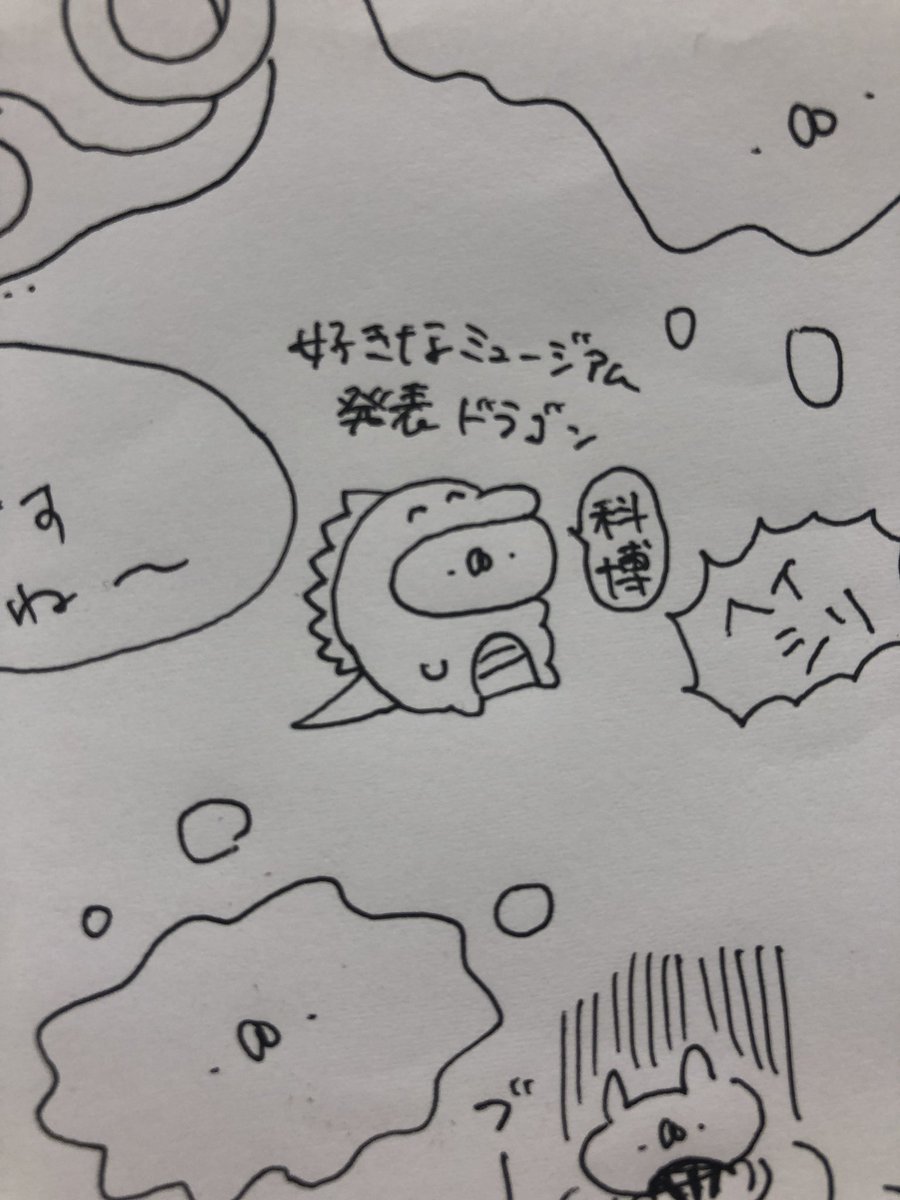 好きなミュージアム
発表ドラゴン
科博
す
ね〜
ブ